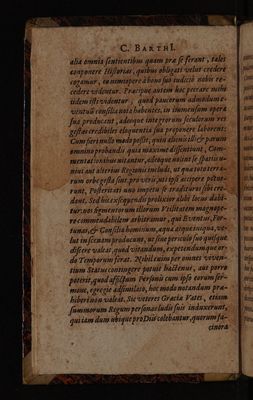 C. BARTHI.
alia omnia sentientibus quam præ se ferant, tales
componere Historias, quibus obligati velut credere
cogamur, eo nimis opere à bono suo iudicio nobis re-
cedere videntur. Præcipue autem hoc peccare mihi
iidem isti videntur; quod paucorum admodum e-
ventuum consilia nota habentes, in immensum opera
sua producant, adeoque integrorum seculorum res
gestas credibiles eloquentia sua proponere laborent;
Cum fieri nullo modo possit, quin alieni illi & parum
omnino probandi quia maxime dissentiunt, Com-
mentationibus nitantur, adeoque non iam se spatiis u-
nius aut alterius Regionis includi, ut quæ tota terra-
rum orbe gesta sunt pro veris, ut ipsi accipere potue-
runt, Posteritati uno impetu se tradituros sibi cre-
dant. Sed his exsequendis prolixior alibi locus dabi-
tur: nos segmentorum illorum Utilitatem magnope-
re commendabilem arbitramur, qui Eventus, For-
tunas, & Consilia hominum, aqua atque iniqua, ve-
lut in scenam producunt, ut sine periculo suo quisque
discere valeat, quid vitandum, expetendumque a-
do Temporum ferat. Nobilem imper omneis viven-
tium Status contingere potuit hactenus, aut porro
poterit, quod affictum Personis cum ipso eorum ser-
mone, egregie adsimilato, hoc modo notandum pra-
hiberi non valeat. Sic veteres Græcia Vates, etiam
summorum Regum personas ludis suis induxerunt,
qui iam dum ubique pro Diis colebantur, quorum fa-
cinora